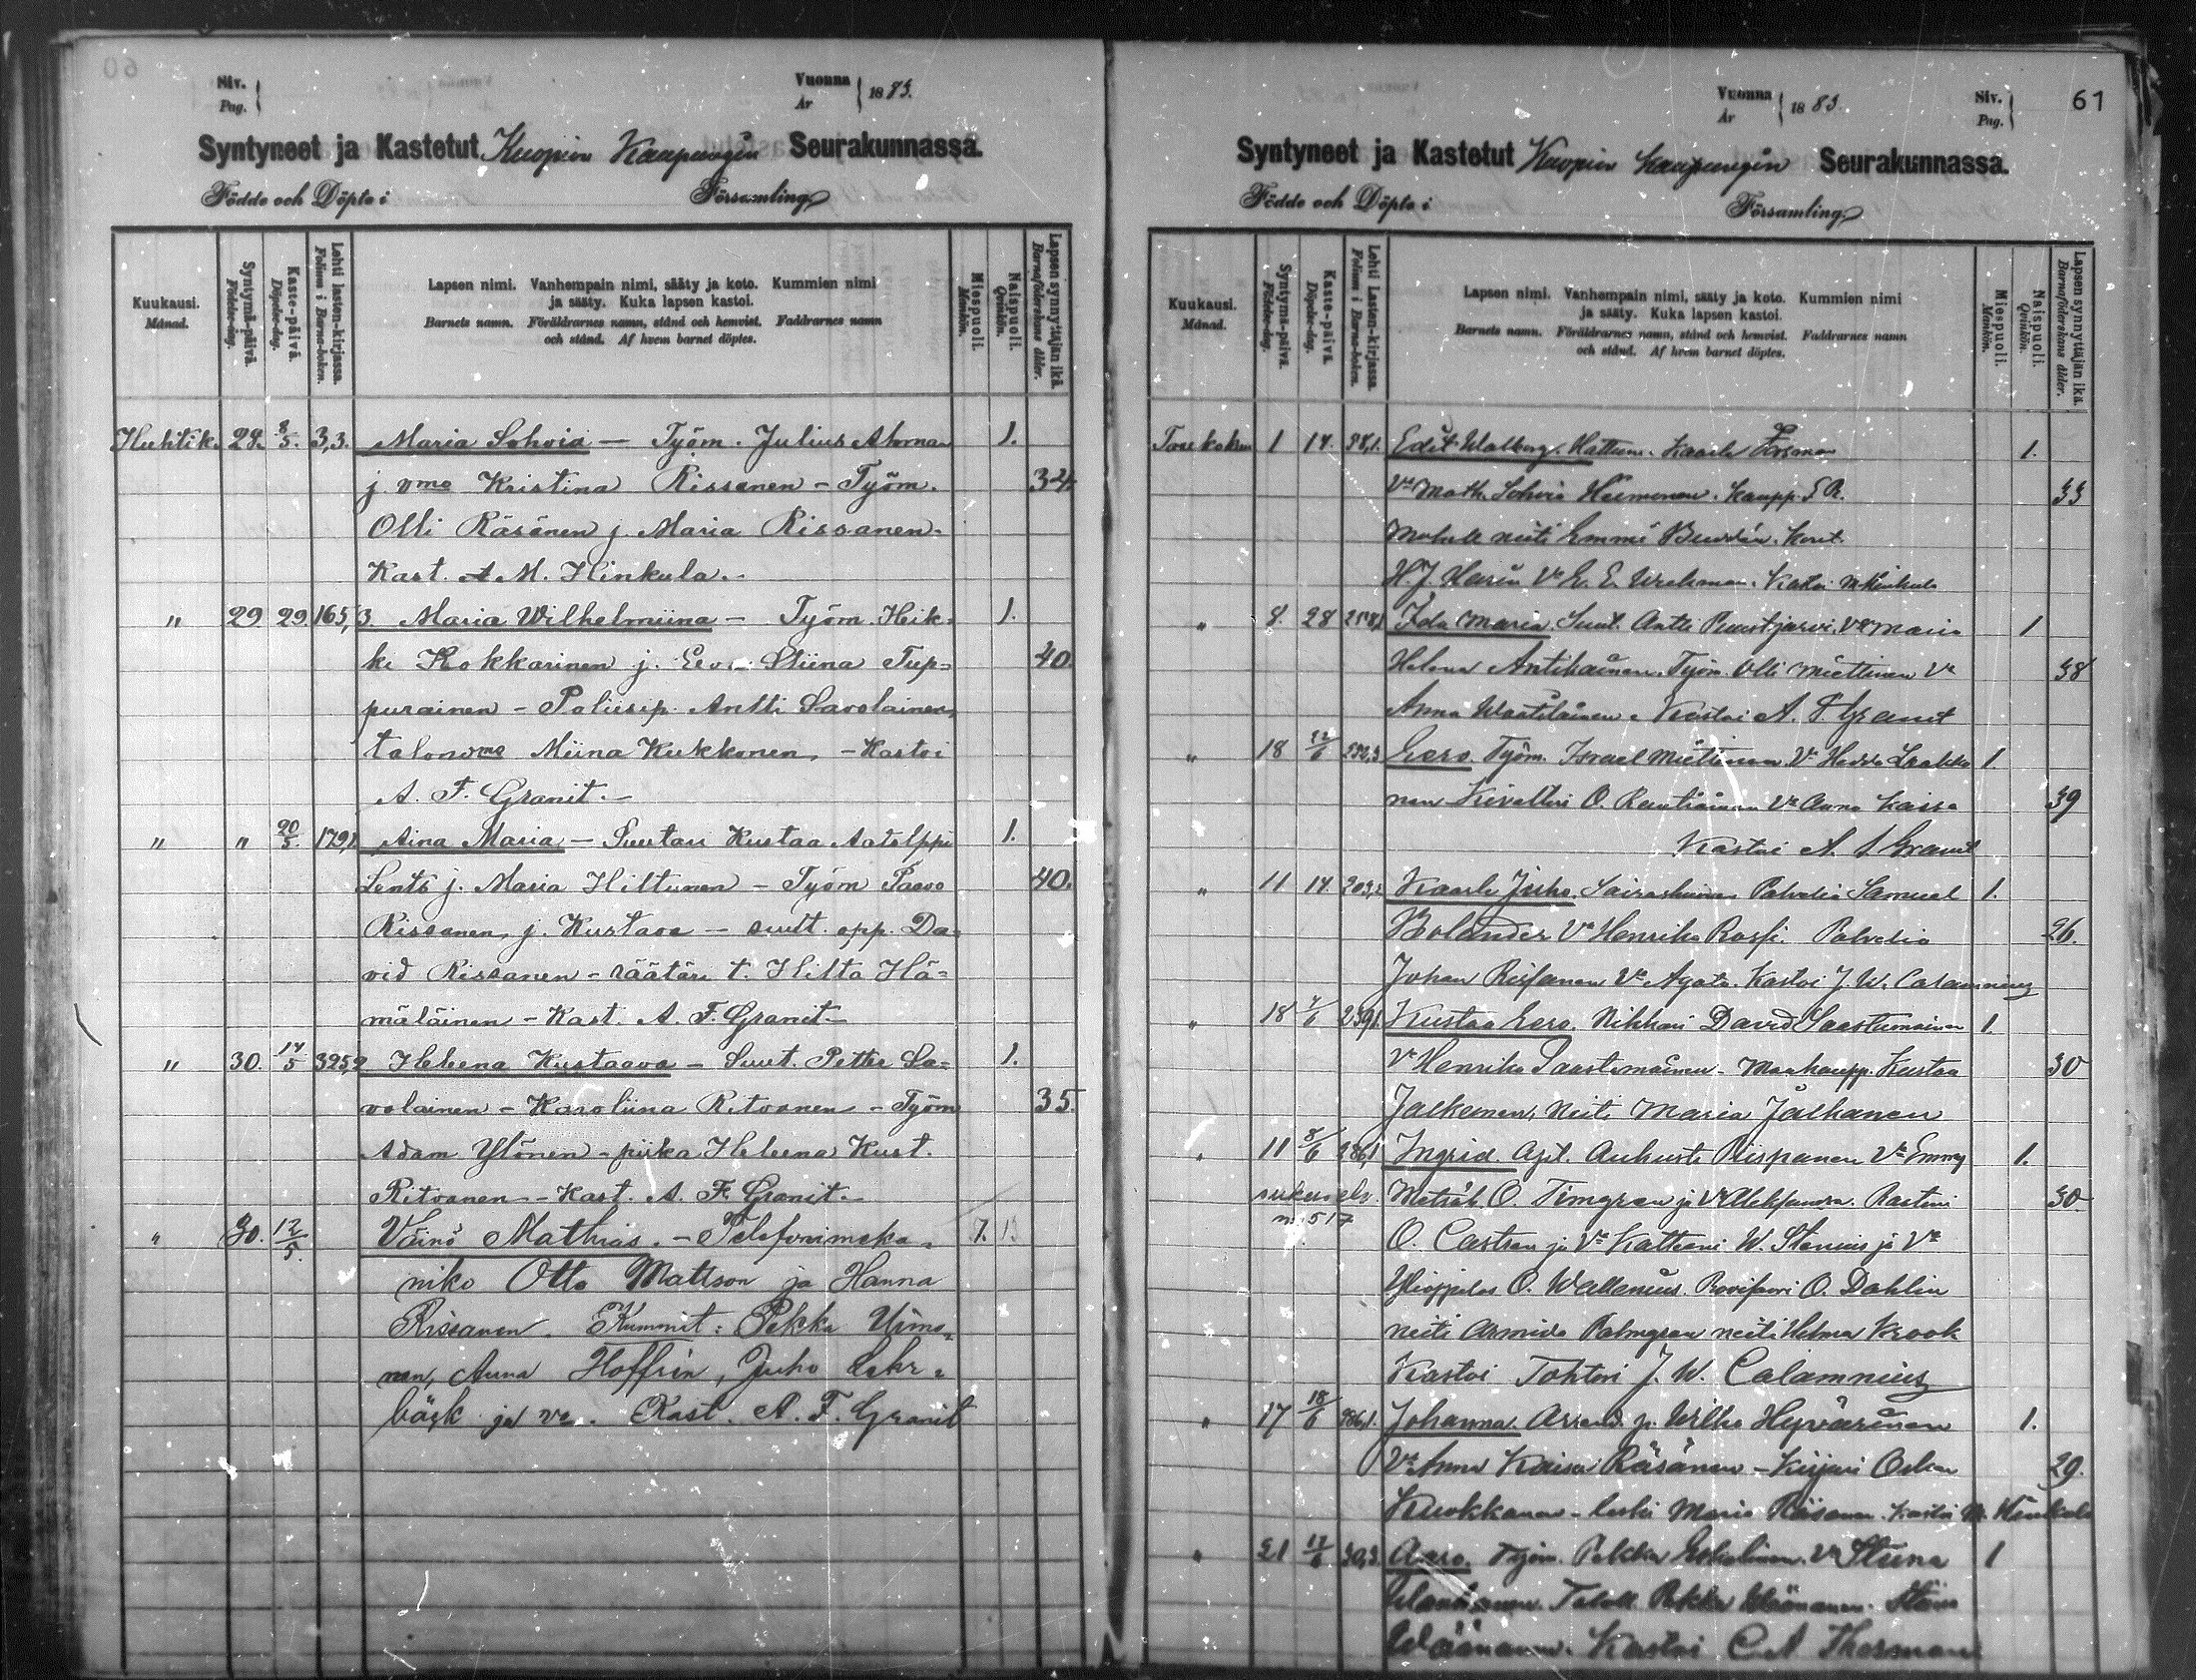 Siv.
Pag.
Vuonna
År
1883.
Syntyneet ja Kastetut Kuopion Kaupungin Seurakunnassa.
Födde och Döpte i Församling
Kuukausi.
Månad.
Syntymä-päivä.
Födelse-dag.
Kaste-päivä.
Döpelse-dag.
Lehti lasten-kirjassa.
Folium i Barna-boken.
Lapsen nimi. Vanhempain nimi, sääty ja koto. Kummien nimi
ja sääty. Kuka lapsen kastoi.
Barnets namn. Föräldrarnes namn, stånd och hemvist. Faddrarnes namn
och stånd. Af hvem barnet döptes.
Miespuoli.
Mankön.
Naispuoli.
Qvinkön.
Lapsen synnyttäjän ikä.
Barnaföderskans ålder.
Huhtik. 28. 8/5. 3,3. Maria Sohvia — Työm. Julius Ahonen 1.
j. vmo Kristina Rissanen - Työm. 34
Olli Räsänen j. Maria Rissanen.
Kast. A M. Hinkula.
" 29 29. 165,3 Maria Wilhelmiina - Työm. Heik- 1.
ki Kokkarinen j. Eeva Stiina Tup= 40.
purainen - Poliisip. Antti Savolainen,
talonvmo Miina Kukkonen, - Kastoi
A. F. Granit.-
" " 20/5. 179,1 Aina Maria - Suutari Kustaa Aatolppi 1.
Lents j. Maria Hiltunen - Työm Paavo 40.
Rissanen, j. Kustava - suut. opp. Da-
vid Rissanen - räätäri t. Hilta Hä=
mäläinen - Kast. A. F. Granit-
" 30. 14/5 325,2 Heleena Kustaava - Suut. Petter Sa= 1.
volainen - Karoliina Ritvanen - Työm 35.
Adam Ylönen - piika Heleena Kust.
Ritvanen - Kast. A. F. Granit.-
" 30. 12/5. Väinö Mathias. - Telefonimeka- 1.
niko Otto Mattson ja Hanna
Rissanen. Kummit: Pekka Uimo-
nen, Anna Hoffrin, Juho Lehr-
bäck ja vo. Kast. A. F. Granit
Vuonna
År
1883.
Siv.
Pag.
61
Syntyneet ja Kastetut Kuopion Kaupungin Seurakunnassa.
Födde och Döpte i Församling
Kuukausi.
Månad.
Syntymä-päivä.
Födelse-dag.
Kaste-päivä.
Döpelse-dag.
Lehti Lasten-kirjassa.
Folium i Barna-boken.
Lapsen nimi. Vanhempain nimi, sääty ja koto. Kummien nimi
ja sääty. Kuka lapsen kastoi.
Barnets namn. Föräldrarnes namn, stånd och hemvist. Faddrarnes namn
och stånd. Af hvem barnet döptes.
Miespuoli.
Mankön.
Naispuoli.
Qvinkön.
Lapsen synnyttäjän ikä.
Barnaföderskans ålder.
Toukokuu 1 14. Edit Walborg. Kaarle Forsman 1.
Vo Math. Sohvia Heimonen. Kaupp. 33
neiti Emmi
H. J. Vo E. E. Kastoi M Hinkula
" 8. 28 Ida Maria Suut. Antti Puustjärvi, Vo Maria 1
Helena Antikainen. Työm. Olli Miettinen Vo 38
Anna Waatilainen. Kastoi A. F. Granit
" 18 Eero. Työm. Israel Miettinen Vo Hedda 1.
nen O. Rautiainen Vo Anna Kaisa 39
Kastoi A. F. Granit
" 11 14. Kaarle Juho. Sairashuoneen Palvelia Samuel 1.
Bolander Vo Henrika Rossi. Palvelia 26.
Johan Vo Agata. Kastoi J. W. Calamnius
" 18 Kustaa Eero. Nikkari David Saastamoinen 1.
Vo Henrika Saastamoinen - Maakaupp. Kustaa 30
Jalkanen, Neiti Maria Jalkanen
" 11 8/6 286,1 Ingrid. Aukusti Piispanen Vo Emmy 1.
O. Timgren ja Vo Aleksandra. 30.
no 517
O. Castren ja Vo W. Stenius ja Vo
Ylioppilas O. Wallenius. Provisori O. Dahlin
neiti Armida Palmgren neiti Helma Krook
Kastoi Tohtori J. W. Calamnius
" 17 18/6 Johanna. Wilho Hyvärinen 1.
Vo Anna Kaisa Räsänen - Kirjuri Oskar 29.
Kuokkanen - leski Maria Räsänen. Kastoi M. Hinkula
" 21 Aaro. Työm. Pekka Eskelinen. Vo Stiina 1
Taloll. Pekka Wäänänen.
Wäänänen. Kastoi C. A Thorman